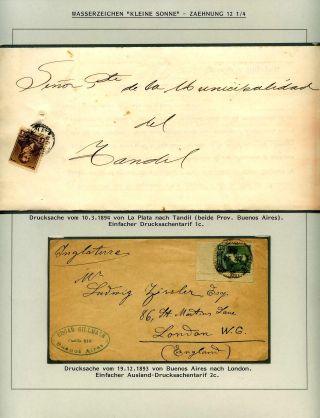 WASSERZEICHEN "KLEINE SONNE" - ZAEHNUNG 12 1/4
Señor Pte de la Municipalidad
del
Tandil
Drucksache vom 10.3.1894 von La Plata nach Tandil (beide Prov. Buenos Aires).
Einfacher Drucksachentarif 1c.
Inglaterra
Mr
Ludwig Zissler Esq.
86, St Martins Lane
London W.C.
(England)
Buenos Aires
Drucksache vom 19.12.1893 von Buenos Aires nach London.
Einfacher Ausland-Drucksachentarif 2c.